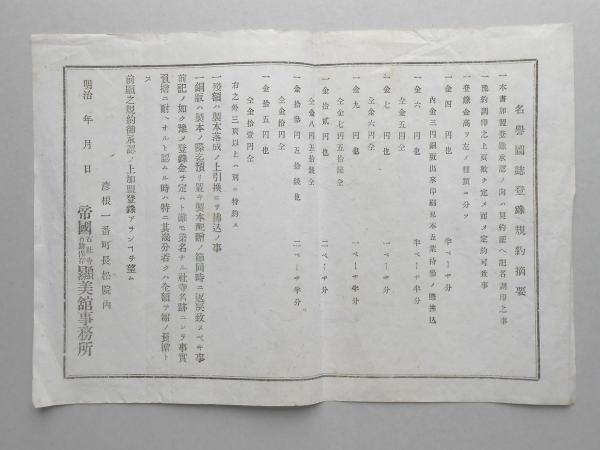 名譽國誌登錄規約摘要
一本書加盟登錄承認ノ向ハ契約証ヘ記名調印之事
一豫約調印之上頁數ヲ定メ而メ定約可致事
一登錄金高ヲ左ノ種類ニ分ツ
一金四円也 半ページ分
內金三円銅版出來印刷見本五葉持參ノ際拂込
一金六円也 半ページ半分
仝金五円仝
一金七円也 一ページ分
仝金六円仝
一金九円也 一ページ半分
仝金七円五拾錢仝
一金拾貳円也 二ページ分
仝金八円五拾錢仝
一金拾參円五拾錢也 二ページ半分
仝金拾円仝
一金拾五円也
仝金拾壹円仝
右之外三頁以上ハ別ニ特約ス
一殘額ハ製本落成ノ上引換ニテ拂込ノ事
一銅版ハ製本ノ際迄預リ置キ製本配贈ノ節同時ニ返戾致スベキ事
前記ノ如ク豫メ登錄金ヲ定ムト雖モ著名ナル社寺名跡ニシテ事實
負擔ニ耐ヘサルト認ムル時ハ特ニ其幾分若クハ全額ヲ館ノ負擔ト
ス
前顯之規約御承認ノ上加盟登錄アランコヲ望ム
明治 年 月 日
彥根一番町長松院內
帝國古社寺古蹟保存顯美館事務所